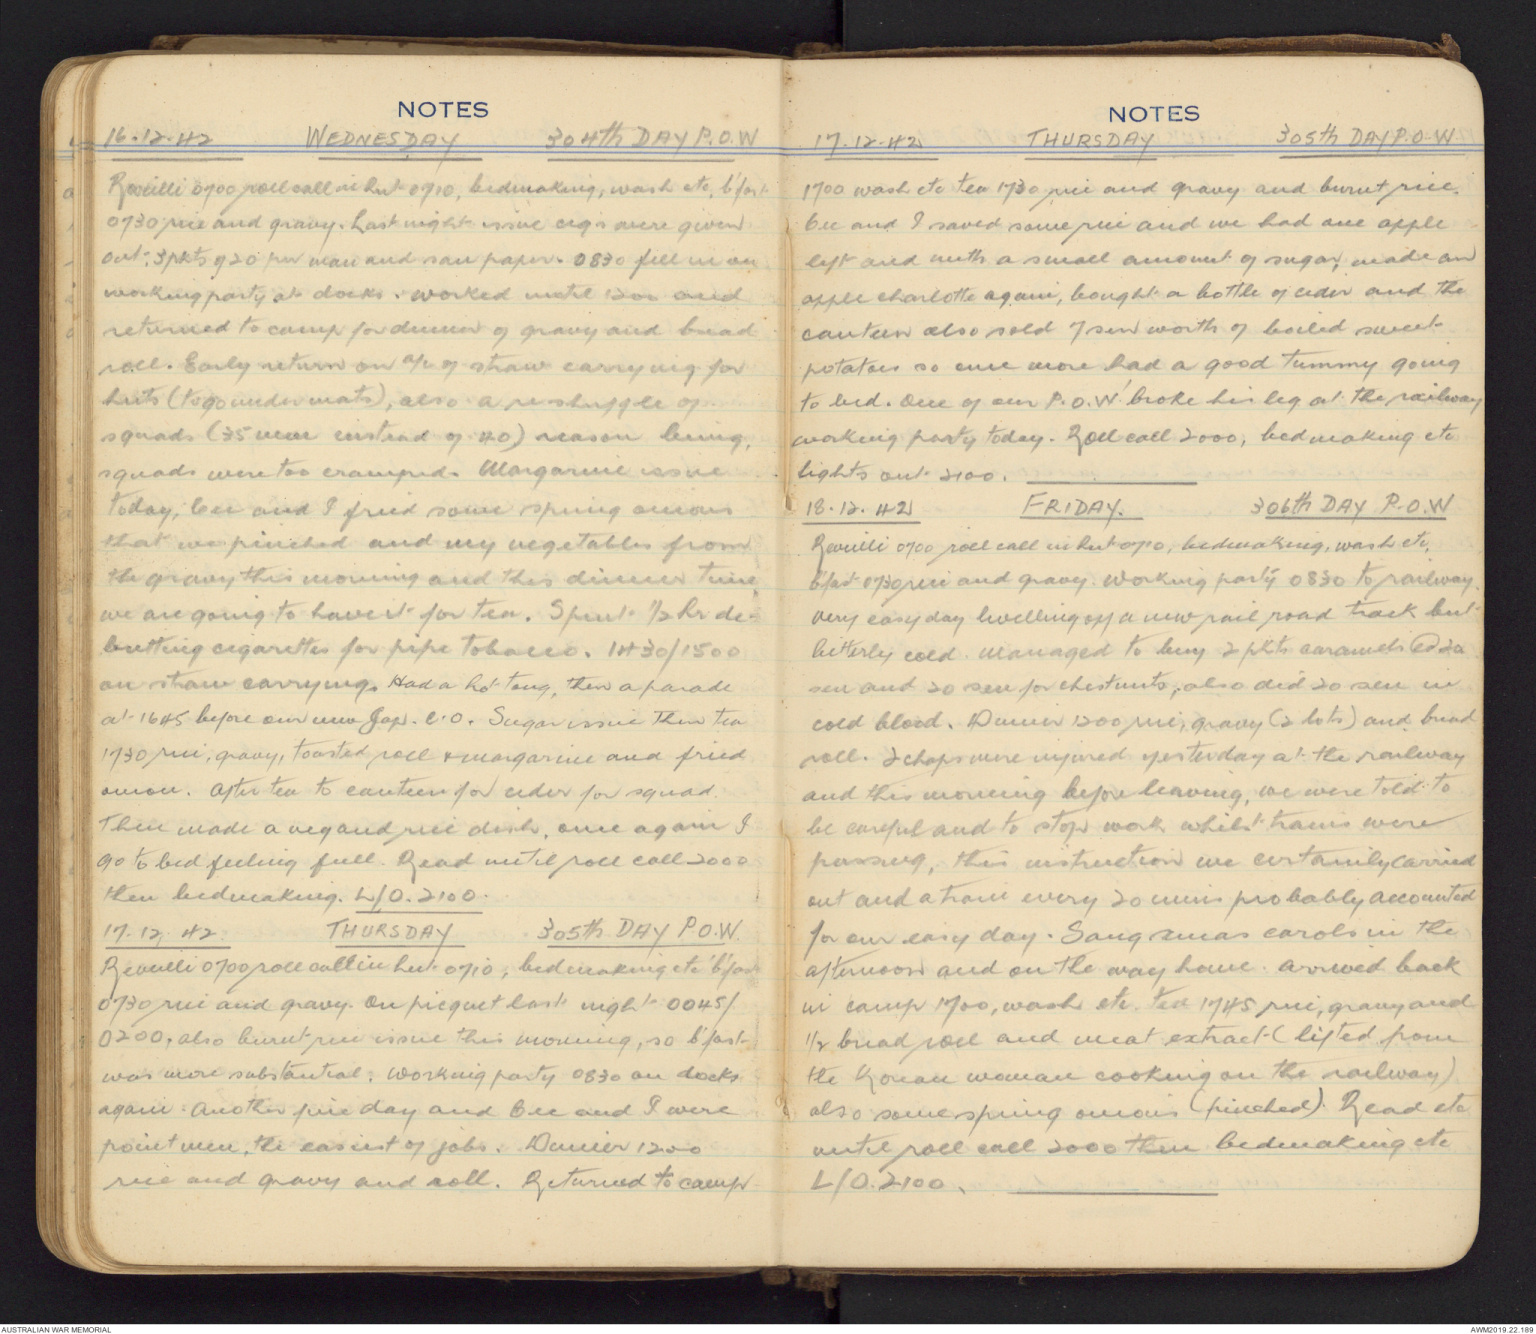 NOTES
16-12-42 WEDNESDAY 304th DAY P.O.W
Reveilli 0700 roll call in hut 0710, bedmaking, wash etc, b'fast
0730 rice and gravy. Last night issue cig's were given
out, 3 pkts of 20 per man and san paper. 0830 fell in on
working party at docks. Worked until 1200 and
returned to camp for dinner of gravy and bread
roll. Early return on a/c of straw carrying for
huts (to go under mats), also a reshuffle of
squads (35 men instead of 40) reason being,
squads were too cramped. Margarine issue
today, Cec and I fried some spring onions
that we pinched and my vegetables from
the gravy this morning and this dinner time
we are going to have it for tea. Spent 1/2 hr de-
butting cigarettes for pipe tobacco. 1430/1500
on straw carrying. Had a hot tong, then a parade
at 1645 before our new Jap. C.O. Sugar issue then tea
1730 rice, gravy, toasted roll & margarine and fried
onion. After tea to canteen for cider for squad.
Then made a veg and rice dish, once again I
go to bed feeling full. Read until roll call 2000
then bedmaking. L/O. 2100.
17.12.42. THURSDAY 305th DAY P.O.W.
Reveilli 0700 roll call in hut 0710, bedmaking etc b'fast
0730 rice and gravy. On picquet last night 0045/
0200, also burnt rice issue this morning, so b'fast
was more substantial. Working party 0830 on docks
again. Another fine day and Cec and I were
point men, the easiest of jobs. Dinner 1200
rice and gravy and roll. Returned to camp
NOTES
17.12.42 THURSDAY 305th DAY P.O.W
1700 wash etc tea 1730 rice and gravy and burnt rice.
Cec and I saved some rice and we had one apple
left and with a small amount of sugar, made an
apple charlotte again, bought a bottle of cider and the
canteen also sold 7 sen worth of boiled sweet
potatoes so once more had a good tummy going
to bed. One of our P.O.W' broke his leg at the railway
working party today. Roll call 2000, bedmaking etc
lights out 2100.
18.12.42 FRIDAY. 306th DAY P.O.W
Reveilli 0700 roll call in hut 0710, bedmaking, wash etc,
b'fast 0730 rice and gravy. Working party 0830 to railway.
very easy day levelling off a new rail road track but
bitterly cold. Managed to buy 2 pkts caramels @ 20
sen and 20 sen for chestnuts, also did 20 sen in
cold blood. Dinner 1200 rice, gravy (2 lots) and bread
roll. 2 chaps were injured yesterday at the railway
and this morning before leaving, we were told to
be careful and to stop work whilst trains were
passing, this instruction we certainly carried
out and a train every 20 mins probably accounted
for our easy day. Sang xmas carols in the
afternoon and on the way home. Arrived back
in camp 1700, wash etc. tea 1745 rice, gravy and
1/2 bread roll and meat extract (lifted from
the Korean woman cooking on the railway)
also some spring onions (pinched). Read etc
until roll call 2000 then bedmaking etc
L/O. 2100.
AUSTRALIAN WAR MEMORIAL
AWM2019.22.189